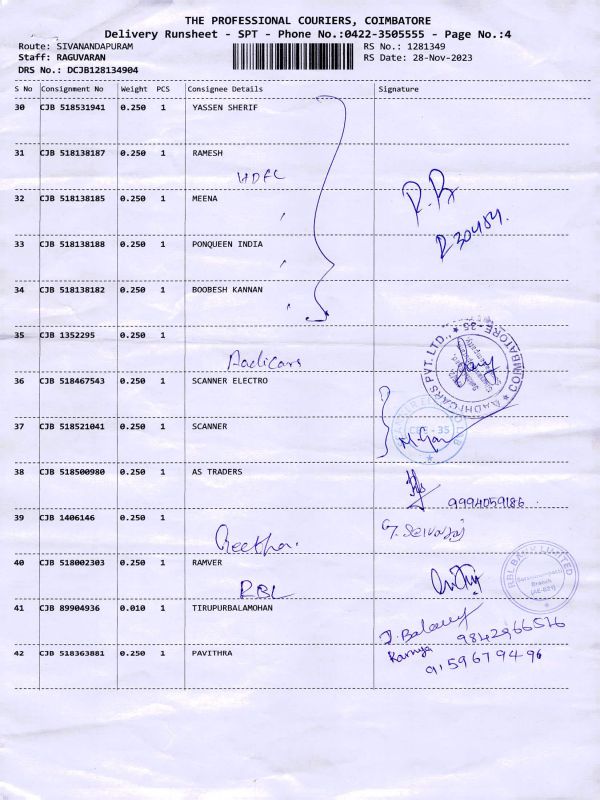 THE PROFESSIONAL COURIERS, COIMBATORE
Delivery Runsheet - SPT - Phone No.:0422-3505555 - Page No.:4
Route: SIVANANDAPURAM
RS No.: 1281349
Staff: RAGUVARAN
RS Date: 28-Nov-2023
DRS No.: DCJB128134904
S No Consignment No Weight PCS Consignee Details Signature
30 CJB 518531941 0.250 1 YASSEN SHERIF
31 CJB 518138187 0.250 1 RAMESH
HDFC
32 CJB 518138185 0.250 1 MEENA
33 CJB 518138188 0.250 1 PONQUEEN INDIA
34 CJB 518138182 0.250 1 BOOBESH KANNAN
35 CJB 1352295 0.250 1
Aadicars
AADHI CARS PVT. LTD., COIMBATORE-35
36 CJB 518467543 0.250 1 SCANNER ELECTRO
37 CJB 518521041 0.250 1 SCANNER
CBE - 35
38 CJB 518500980 0.250 1 AS TRADERS
9994059186
39 CJB 1406146 0.250 1
Geetha.
40 CJB 518002303 0.250 1 RAMVER
RBL
RBL BANK LIMITED
Branch
41 CJB 89904936 0.010 1 TIRUPURBALAMOHAN
9842966516
42 CJB 518363881 0.250 1 PAVITHRA
Ramya
9159679496